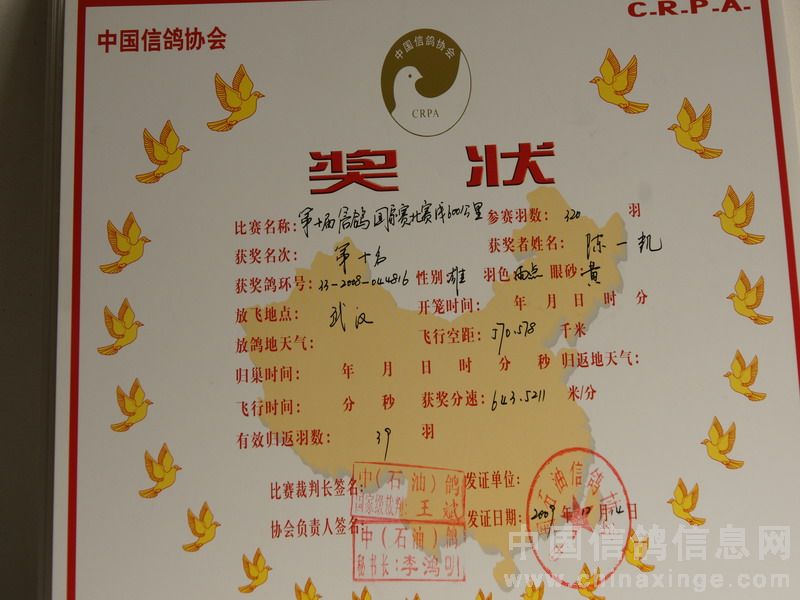 C-R-P-A-
中国信鸽协会
中国信鸽协会
CRPA
奖 状
比赛名称: 第十届信鸽国际赛北赛段600公里 参赛羽数: 320 羽
获奖名次: 第十名 获奖者姓名: 陈一凯
获奖鸽环号: 33-2008-044816 性别 雄 羽色 雨点 眼砂 黄
放飞地点: 武汉 开笼时间: 年 月 日 时 分
放鸽地天气: 飞行空距: 570.578 千米
归巢时间: 年 月 日 时 分 秒 归返地天气:
飞行时间: 分 秒 获奖分速: 643.5211 米/分
有效归返羽数: 39 羽
比赛裁判长签名: 发证单位:
中(石油)鸽
国家级裁判: 王斌
协会负责人签名: 发证日期: 2009 年 月 14 日
中(石油)鸽
秘书长: 李鸿明
石油信鸽
中国信鸽信息网
www.chinaxinge.com